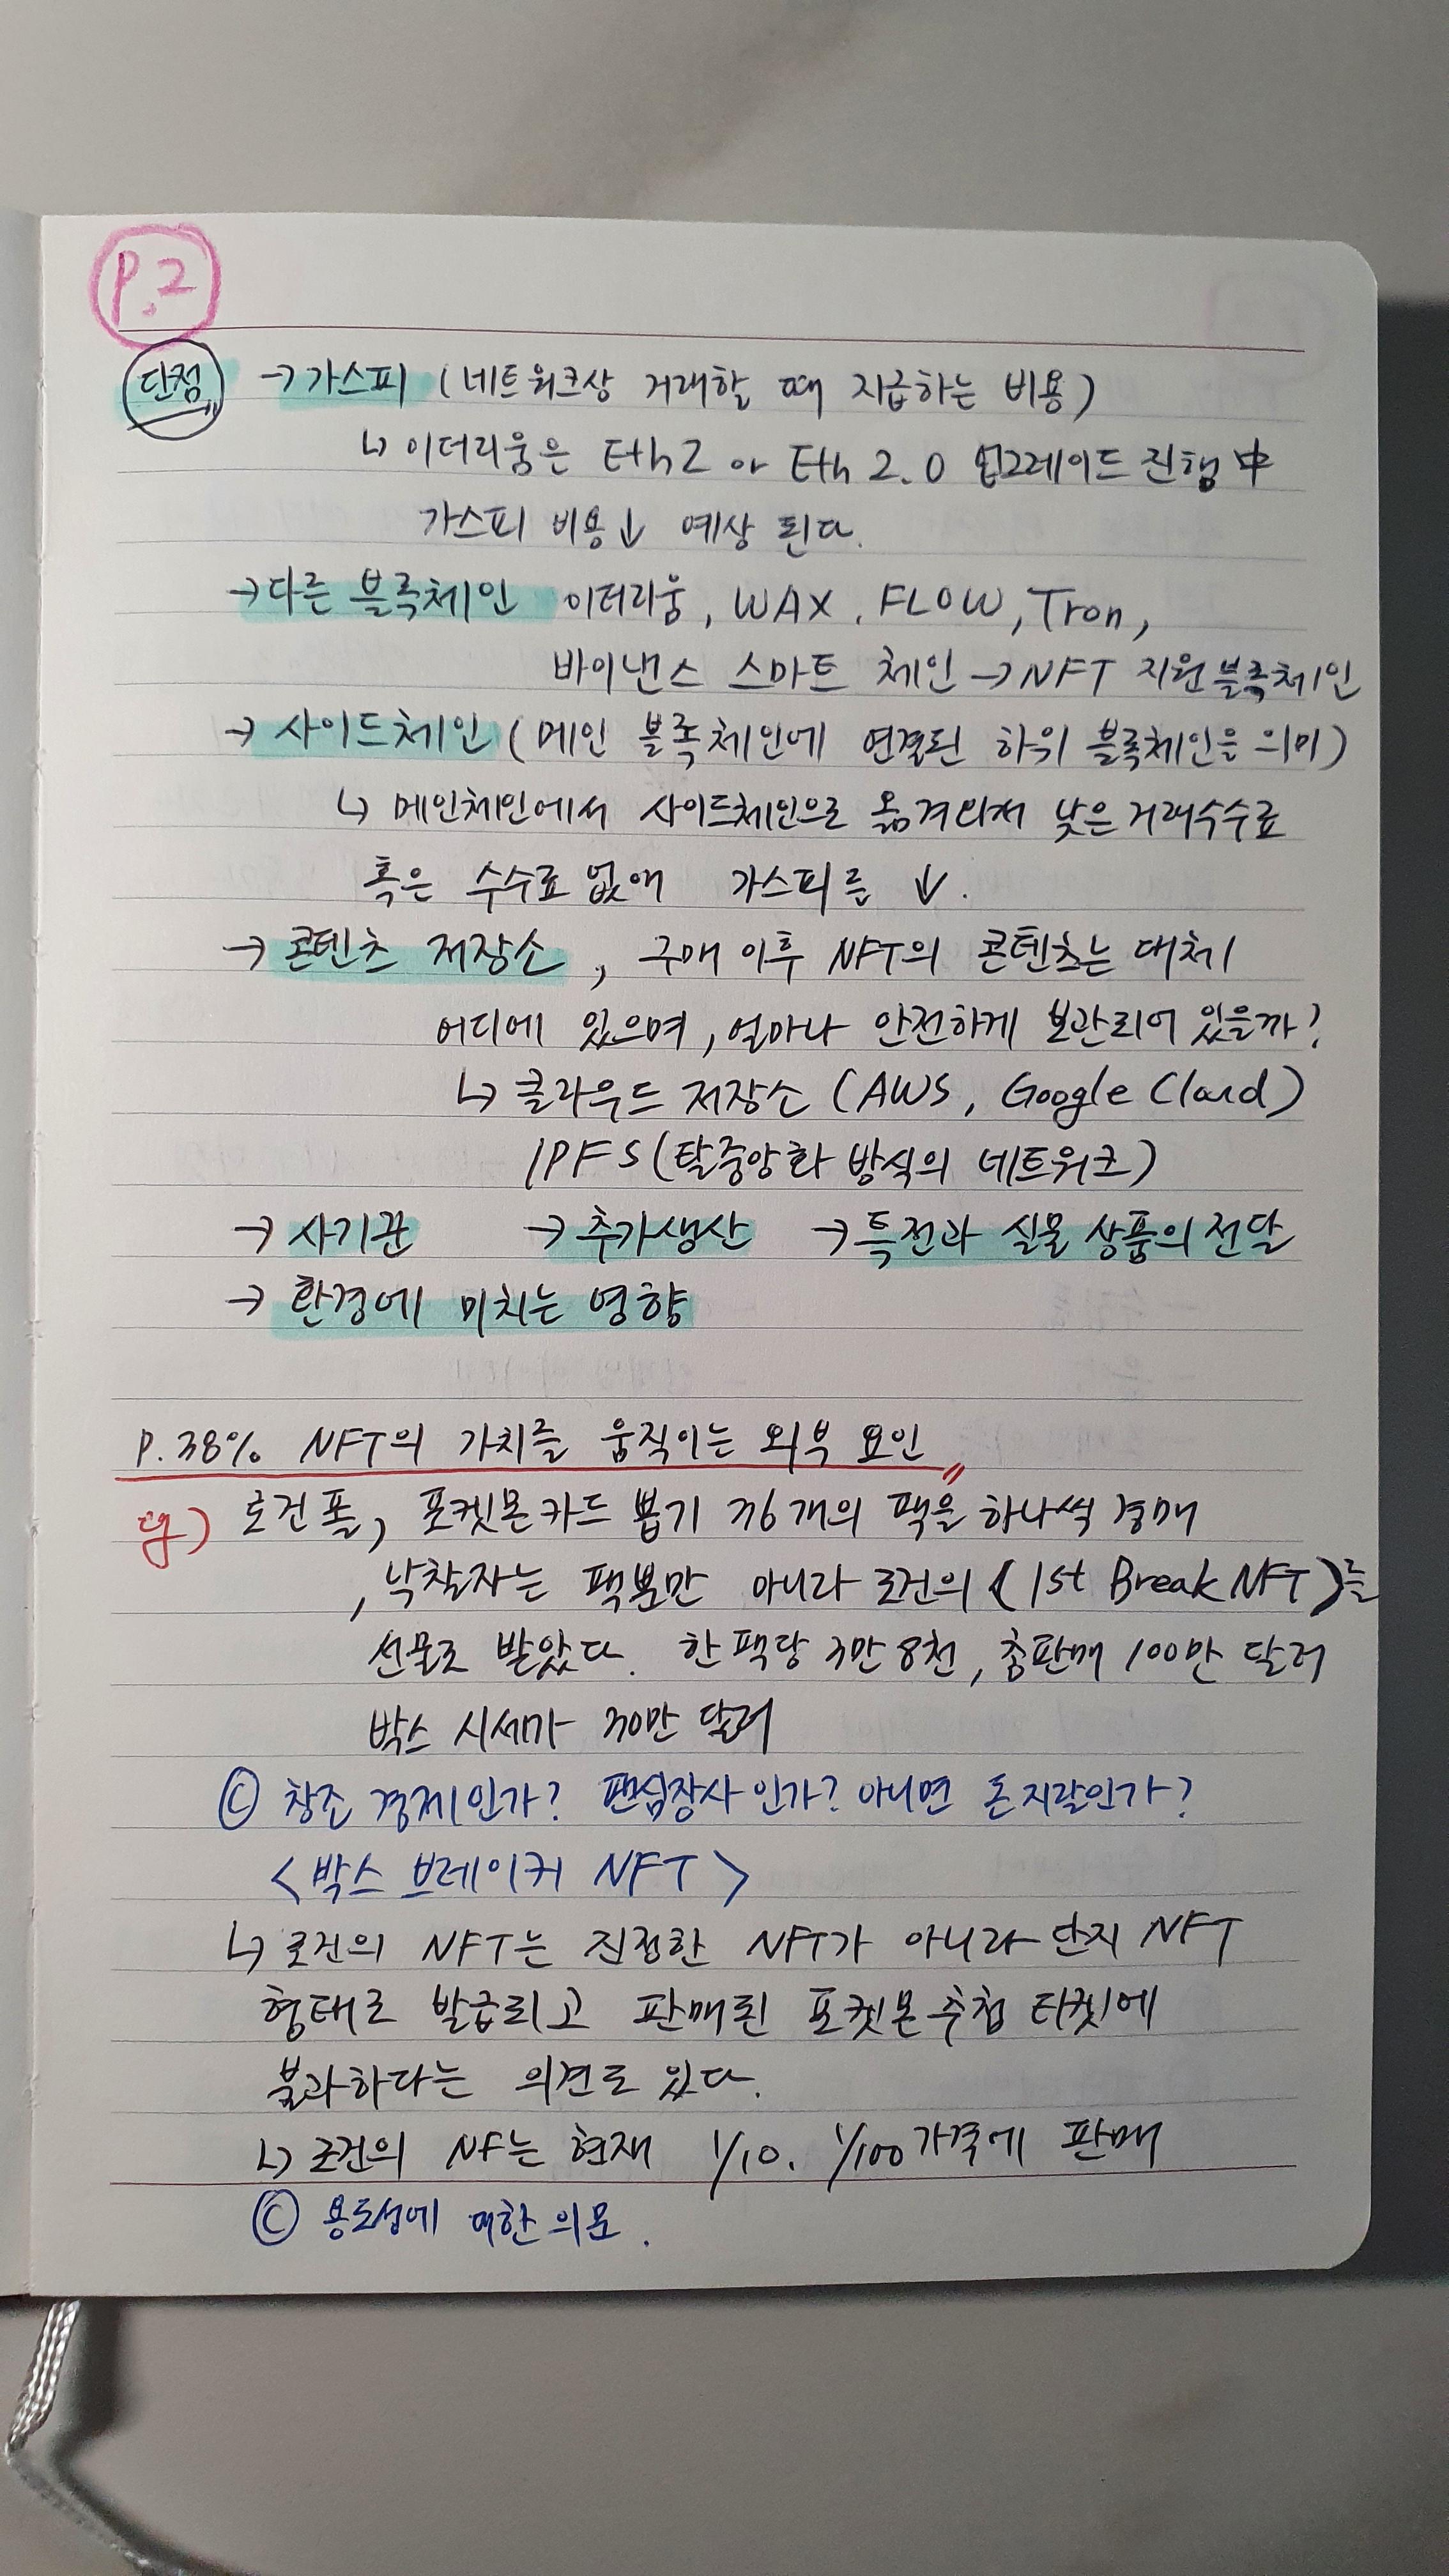 P.2
단점 → 가스피 (네트워크상 거래할 때 지급하는 비용)
↳ 이더리움은 Eth2 or Eth 2.0 업그레이드 진행 中
가스피 비용↓ 예상 된다.
→ 다른 블록체인 이더리움, WAX, FLOW, Tron,
바이낸스 스마트 체인 → NFT 지원 블록체인
→ 사이드체인 (메인 블록체인에 연결된 하위 블록체인을 의미)
↳ 메인체인에서 사이드체인으로 옮겨와서 낮은 거래수수료
혹은 수수료 없애 가스피를 ↓.
→ 콘텐츠 저장소, 구매 이후 NFT의 콘텐츠는 대체
어디에 있으며, 얼마나 안전하게 보관되어 있을까?
↳ 클라우드 저장소 (AWS, Google Cloud)
IPFS (탈중앙화 방식의 네트워크)
→ 사기꾼 → 추가생산 → 특전과 실물 상품의 전달
→ 환경에 미치는 영향
P.38% NFT의 가치를 움직이는 외부 요인
예) 로건폴, 포켓몬카드 뽑기 36개의 팩을 하나씩 경매
, 낙찰자는 팩뿐만 아니라 로건의 《1st Break NFT》를
선물로 받았다. 한 팩당 3만 8천, 총판매 100만 달러
박스 시세가 30만 달러
ⓒ 창조 경제인가? 팬심장사인가? 아니면 돈지랄인가?
<박스 브레이커 NFT>
↳ 로건의 NFT는 진정한 NFT가 아니라 단지 NFT
형태로 발급되고 판매된 포켓몬 추첨 티켓에
불과하다는 의견도 있다.
↳ 로건의 NF는 현재 1/10, 1/100 가격에 판매
ⓒ 용도성에 대한 의문.